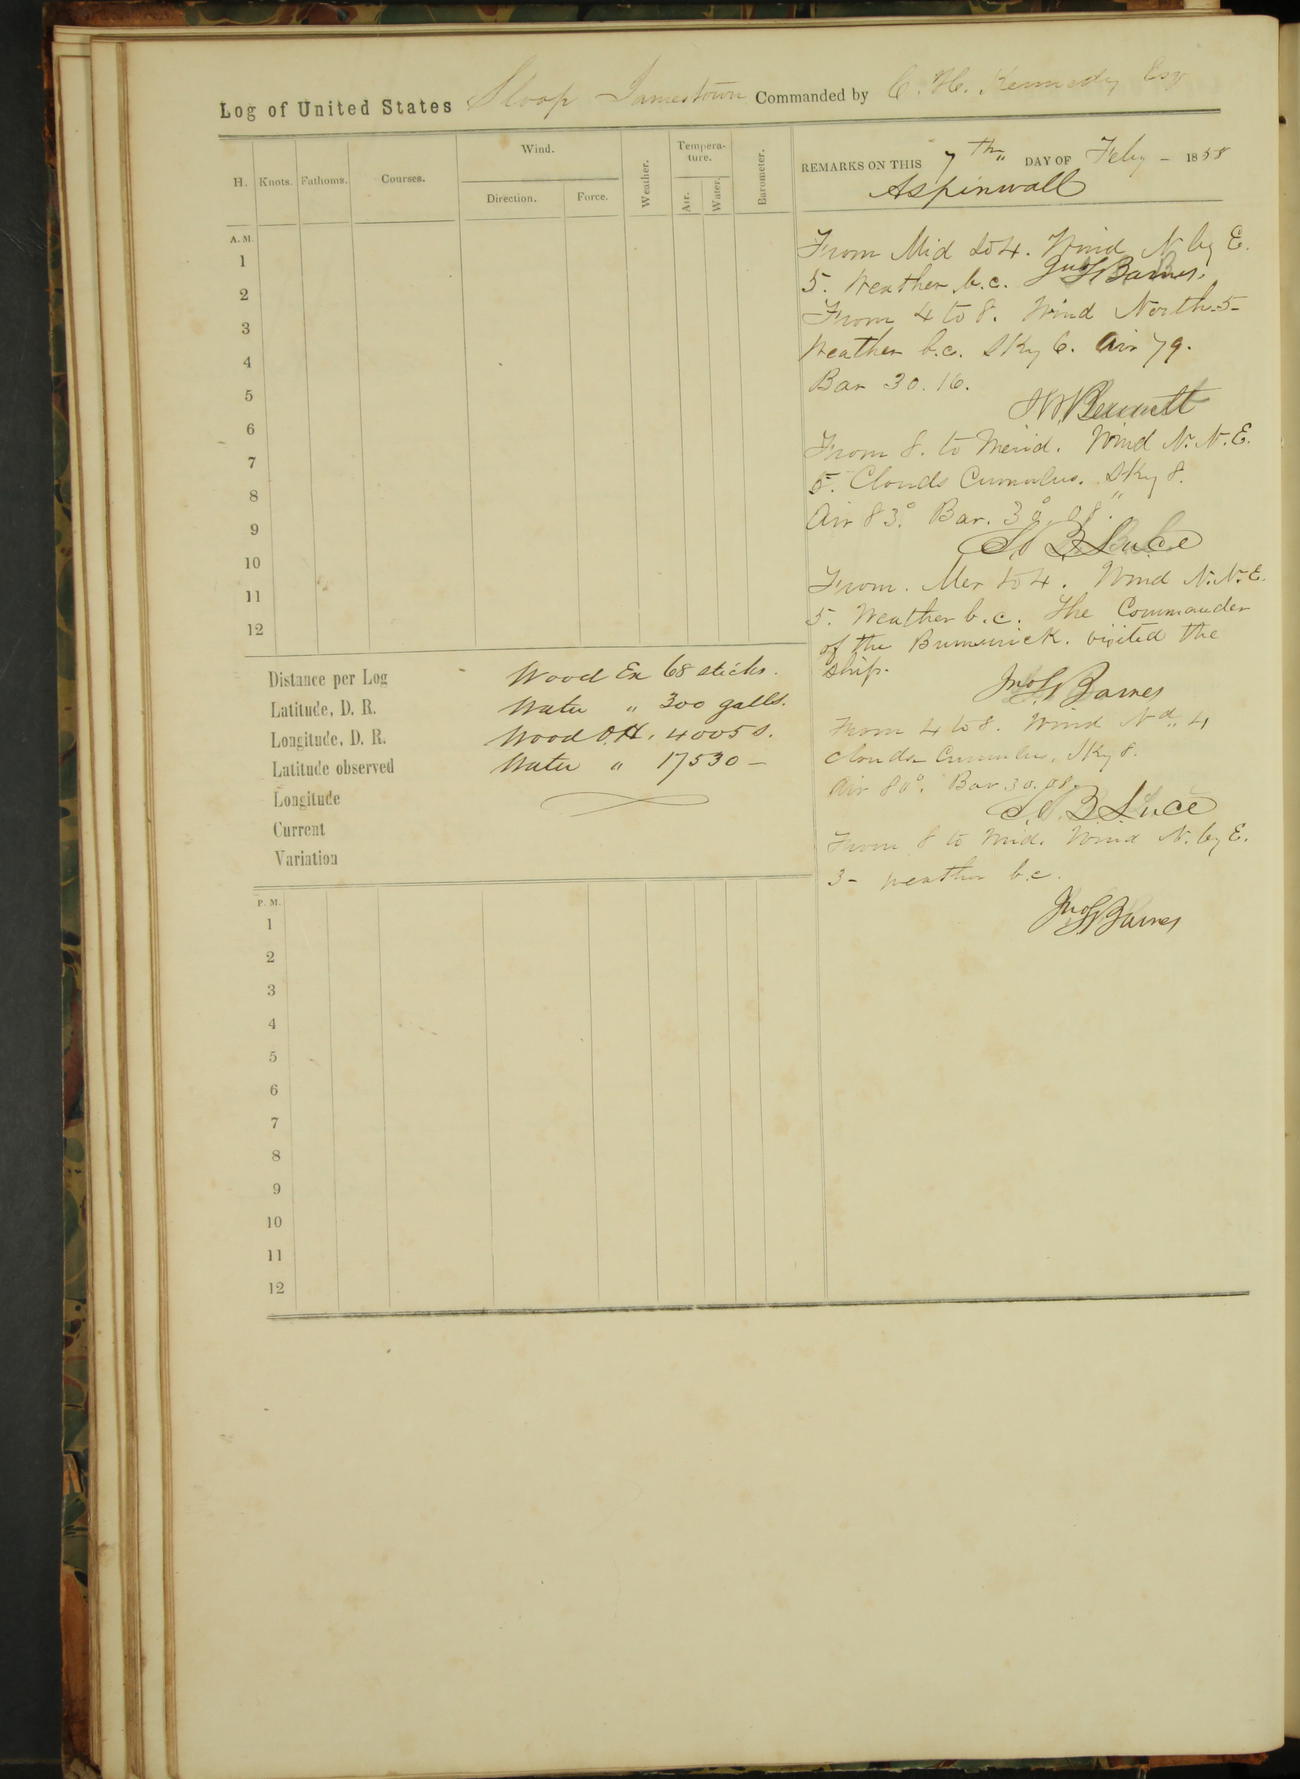 Log of United States Sloop Jamestown Commanded by C. H. Kennedy Esq
H. Knots. Fathoms. Courses. Wind. Direction. Force. Weather. Tempera-ture. Air. Water. Barometer.
REMARKS ON THIS 7th,, DAY OF Feby - 1858
Aspinwall
A. M.
1
2
3
4
5
6
7
8
9
10
11
12
From Mid to 4. Wind N. by E.
5. Weather b.c. Jno S Barnes.
From 4 to 8. Wind North-5-
Weather b.c. Sky 6. Air 79.
Bar 30.16.
Bennett
From 8. to Merid. Wind N. N. E.
5. Clouds Cumulus. Sky 8.
Air 83°. Bar. 30.08."
S. B. Luce
From. Mer to 4. Wind N. N. E
5. Weather b.c. The Commander
of the Brunswick. visited the
ship.
Jno S Barnes
From 4 to 8. Wind Nd,, 4
Clouds Cumulus, Sky 8.
Air 80°. Bar 30.08.
S. B. Luce
From 8 to Mid. Wind N. by E.
3- weather b.c.
Jno S Barnes
Distance per Log
Latitude, D. R.
Longitude, D. R.
Latitude observed
Longitude
Current
Variation
Wood Ex 68 sticks.
Water " 300 galls.
Wood O.H. 4005 s.
Water " 17530 -
P. M.
1
2
3
4
5
6
7
8
9
10
11
12